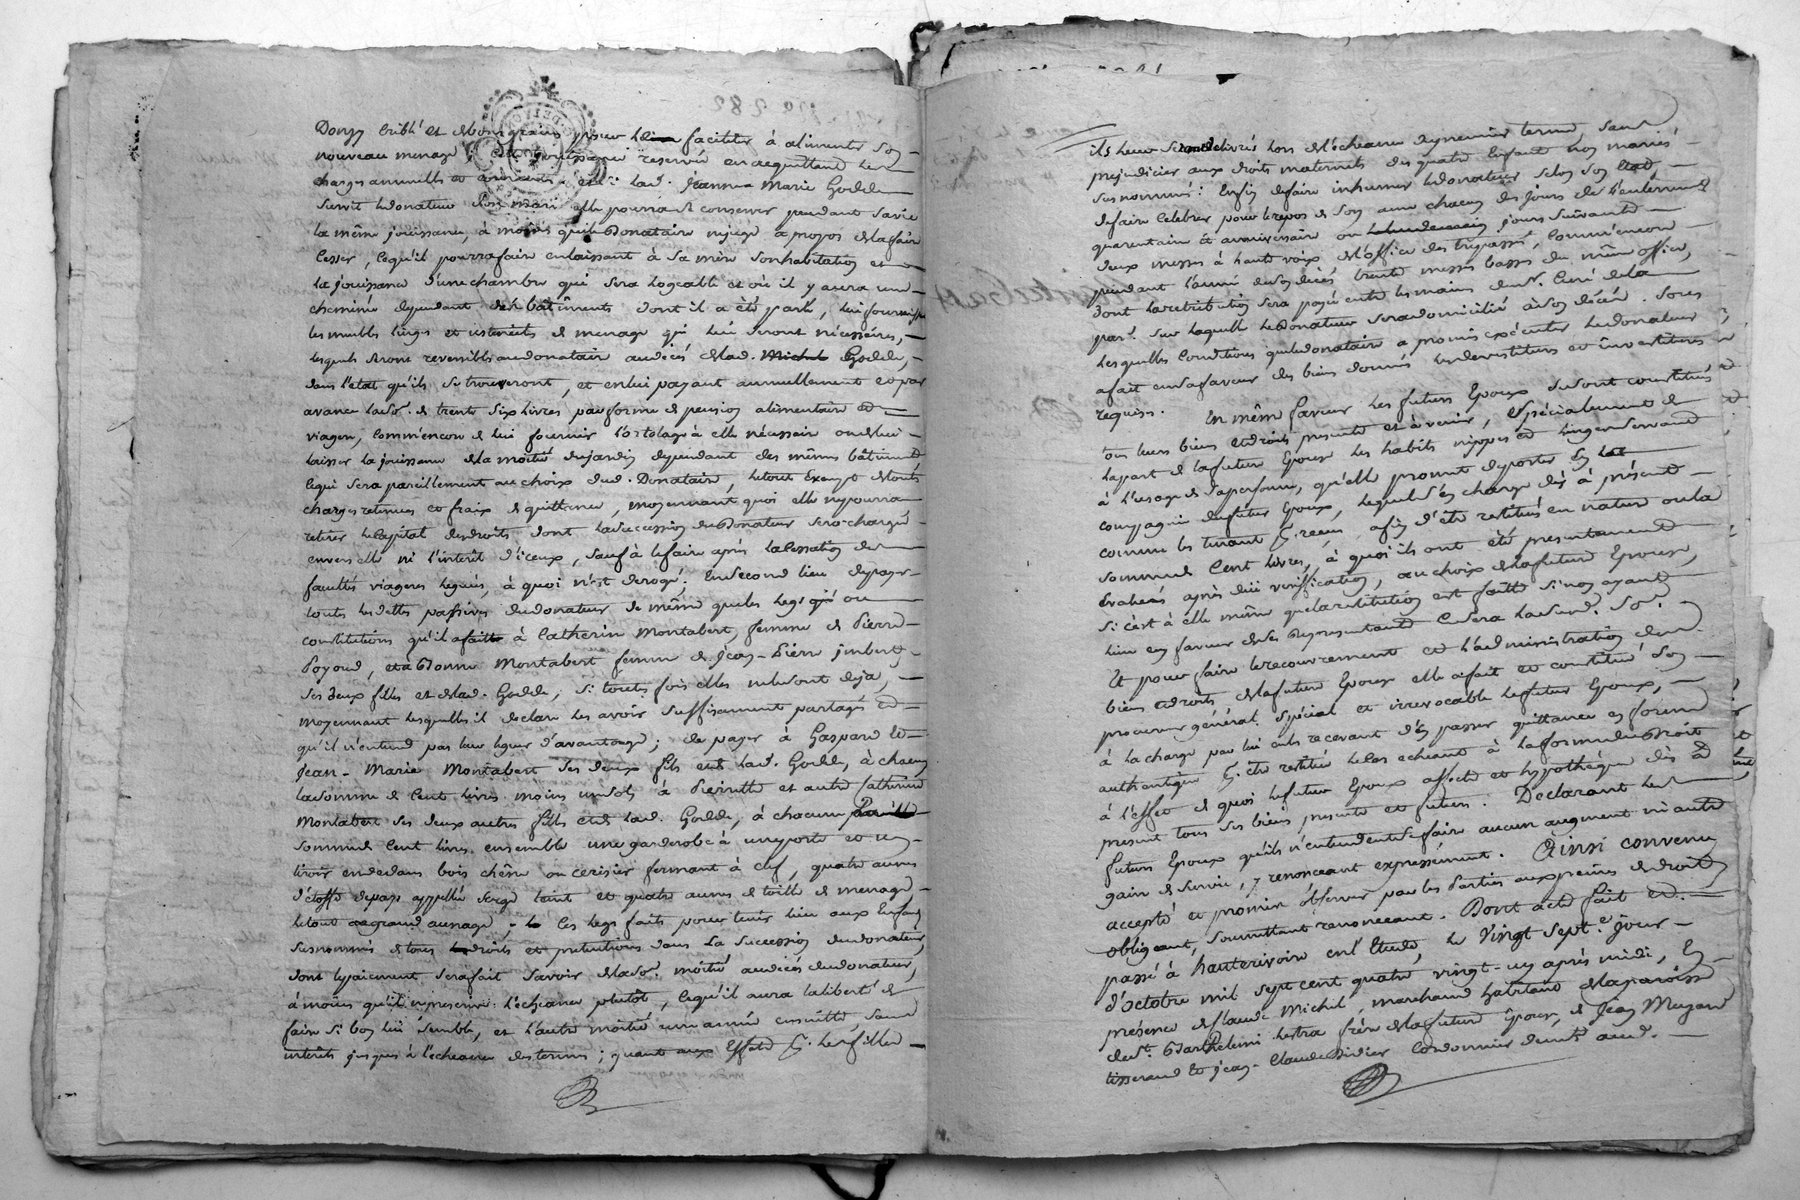 nouveau menage, reservé en acquittant les
charges annuelles et Jeanne Marie Godde
survit le donateur son mari elle pourra conserver pendant sa vie
la même jouissance, à moins que le Donataire juge à propos de la faire
Cesser, ce qu'il pourra faire en laissant à sa mere son habitation et
la jouissance d'une chambre qui sera logeable et où il y aura une
cheminée dependant des bâtiments dont il a été parlé, lui fournissant
les meubles linges et ustensiles de menage qui lui seront nécessaires,
lesquels seront reversibles au donataire au décés de lad. Michel Godde,
dans l'etat qu'ils se trouveront, et en lui payant annuellement et par
avance la so. de trente six livres, par forme de pension alimentaire et
viagere, comm'encore de lui fournir l'ortolage à elle nécessaire ou de lui
laisser la jouissance de la moitié du jardin dependant des mêmes bâtiments
ce qui sera pareillement au choix dud. Donataire, le tout exempt de toutes
charges retenues et frais de quittance, moyennant quoi elle ne pourra
retirer le capital des droits dont la succession du Donateur sera chargée
envers elle ni l'interêt d'iceux, sauf à le faire après la cessation des
facultés viageres leguées, à quoi n'est derogé. En second lieu de payer
touts les dettes passives du donateur de même que les legs qui ou
constitutions qu'il a faits à Catherine Montabert, femme de Pierre
Poyoud, et à Bonne Montabert femme de Jean-Pierre Imbert,
ses deux filles et de lad. Godde, si toutes fois elles ne le sont deja,
moyennant lesquelles il declare les avoir suffisamment partagés et
qu'il n'entend pas leur leguer d'avantage; de payer à Gaspard et
Jean-Marie Montabert ses deux fils et de lad. Godde, à chacun
la somme de Cent livres moins un sol, à Pierrette et autre Catherine
Montabert ses deux autres filles et de lad. Godde, à chacune pareille
somme de Cent livres ensemble une garderobe à une porte et un
tiroir en dedans bois chêne ou cerisier fermant à clef, quatre aunes
d'étoffe de pays appellée serge teint et quatre aunes de toille de menage
le tout au grand aunage, ces legs faits pour tenir lieu aux Enfans
susnommés de tous droits et pretentions dans La succession du donateur,
dont le paiement sera fait savoir de la so. moitié au décés du donateur,
à moins qu'il n'en previenne l'echeance plutôt, ce qu'il aura la liberté de
faire si bon lui semble, et l'autre moitié une année ensuitte sans
interêts jusques à l'echeance des termes; quant aux Effets les filles
ils leur seront delivrés lors de l'echeance du premier terme, sans
prejudicier aux droits maternels des quatre Enfans non mariés
susnommés: Enfin de faire inhumer le donateur selon son Etat,
de faire Celebrer pour le repos de son ame chacun des jours de l'enterrement
quarentaine et anniversaire ou lendemain jours suivants
deux messes à haute voix de l'office des trepassés, comm'encore
pendant l'année de son décés trente messes basses du même office,
dont la retribution sera payée entre les mains de Mr. Curé de la
par. sur laquelle le Donateur sera domicilié à son décés. Sous
lesquelles Conditions que le donataire a promis exécuter le donateur
a fait en sa faveur des biens donnés les devestitures et investitures
requises. En même faveur les futurs Epoux se sont constitués
tous leurs biens et droits presents et à venir, et spécialement de
la part de la future Epouse les habits nippes et linges servant
à l'usage de sa personne, qu'elle promet de porter en la
compagnie du futur Epoux, lequel s'en charge dès à présent
comme les tenant recus, afin d'être restitués en nature ou la
somme de Cent livres, à quoi ils ont été presentement
évalués après due verification, au choix de la future Epouse,
si c'est à elle même que la restitution est faitte si non ayant
lieu en faveur de ses Representants Ce sera lad. so.
Et pour faire le recouvrement et l'administration des
biens et droits de la future Epouse elle a fait et constitué son
procureur général spécial et irrevocable le futur Epoux,
à la charge par lui en les recevant d'en passer quittance en forme
authentique être restituée le cas echeant à la forme du droit
à l'effet de quoi le futur Epoux affecte et hypothèque dès à
present tous ses biens presents et futurs. Declarant les
futurs Epoux qu'ils n'entendent se faire aucun augment ni autre
gain de survie, y renonceant expressément. Ainsi convenu
accepté et promis observer par les Parties aux peines de droit
obligeant, soumettant renonceant. Dont acte fait et
passé à hauterivoire en l'Etude, le Vingt sept.e jour
d'octobre mil sept cent quatre vingt-un après midi, En
présence de Claude Michel, marchand habitant de la paroisse
Barthelemi Lestra frère de la future Epouse, de Jean Mezard
tisserand et Jean-Claude Didier Cordonnier dem.t aud.